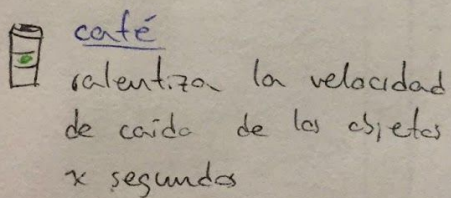 café
ralentiza la velocidad
de caída de los objetos
x segundos